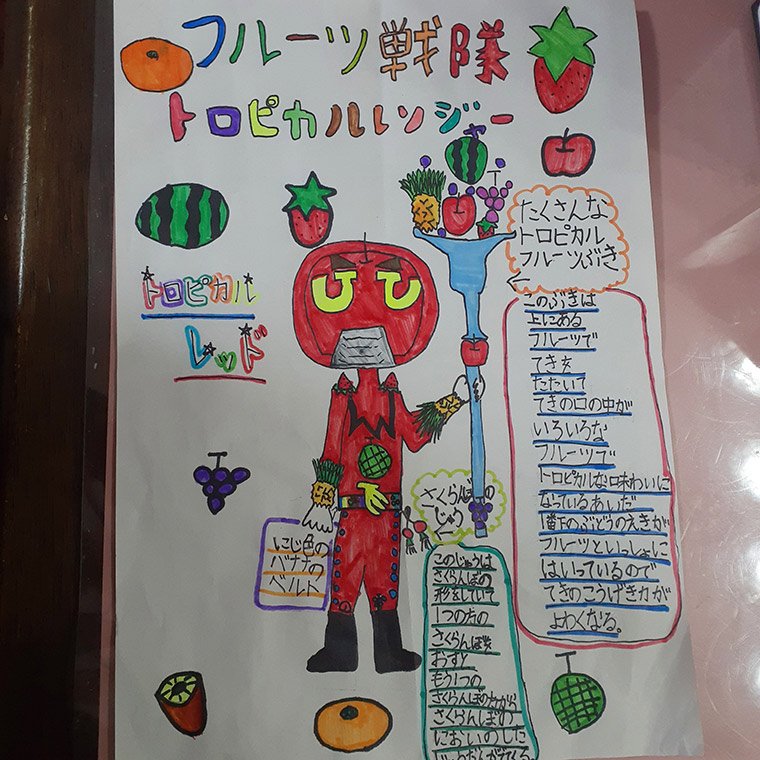 フルーツ戦隊
トロピカルレンジャー
たくさんな
トロピカル
フルーツぶき
トロピカル
レッド
このぶきは
上にある
フルーツで
てきを
たたいて
てきの口の中が
いろいろな
フルーツで
トロピカルな味わいに
なっているあいだ
1番下のぶどうのえきが
フルーツといっしょに
はいっているので
てきのこうげき力が
よわくなる。
さくらんぼの
じゅう
にじ色の
バナナの
ベルト
このじゅうは
さくらんぼの
形をしていて
1つの方の
さくらんぼを
おすと
もう1つの
さくらんぼの方から
さくらんぼの
においのした